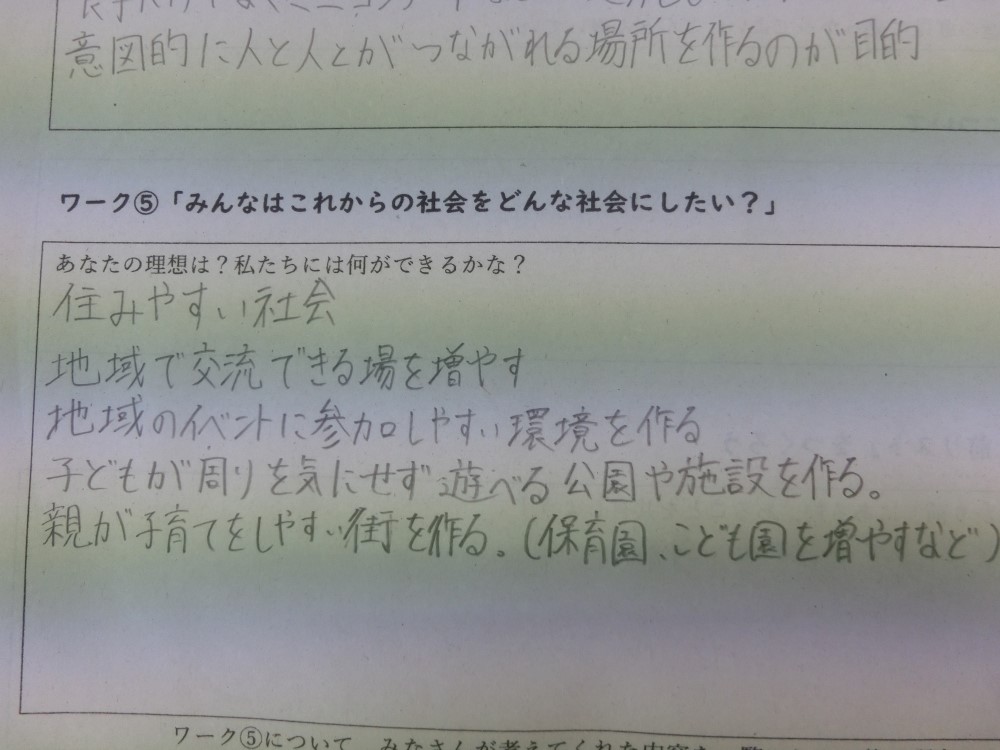 意図的に人と人とがつながれる場所を作るのが目的
ワーク⑤「みんなはこれからの社会をどんな社会にしたい?」
あなたの理想は?私たちには何ができるかな?
住みやすい社会
地域で交流できる場を増やす
地域のイベントに参加しやすい環境を作る
子どもが周りを気にせず遊べる公園や施設を作る。
親が子育てをしやすい街を作る。(保育園、こども園を増やすなど)
ワーク⑤について、みなさんが考えてくれた内容を